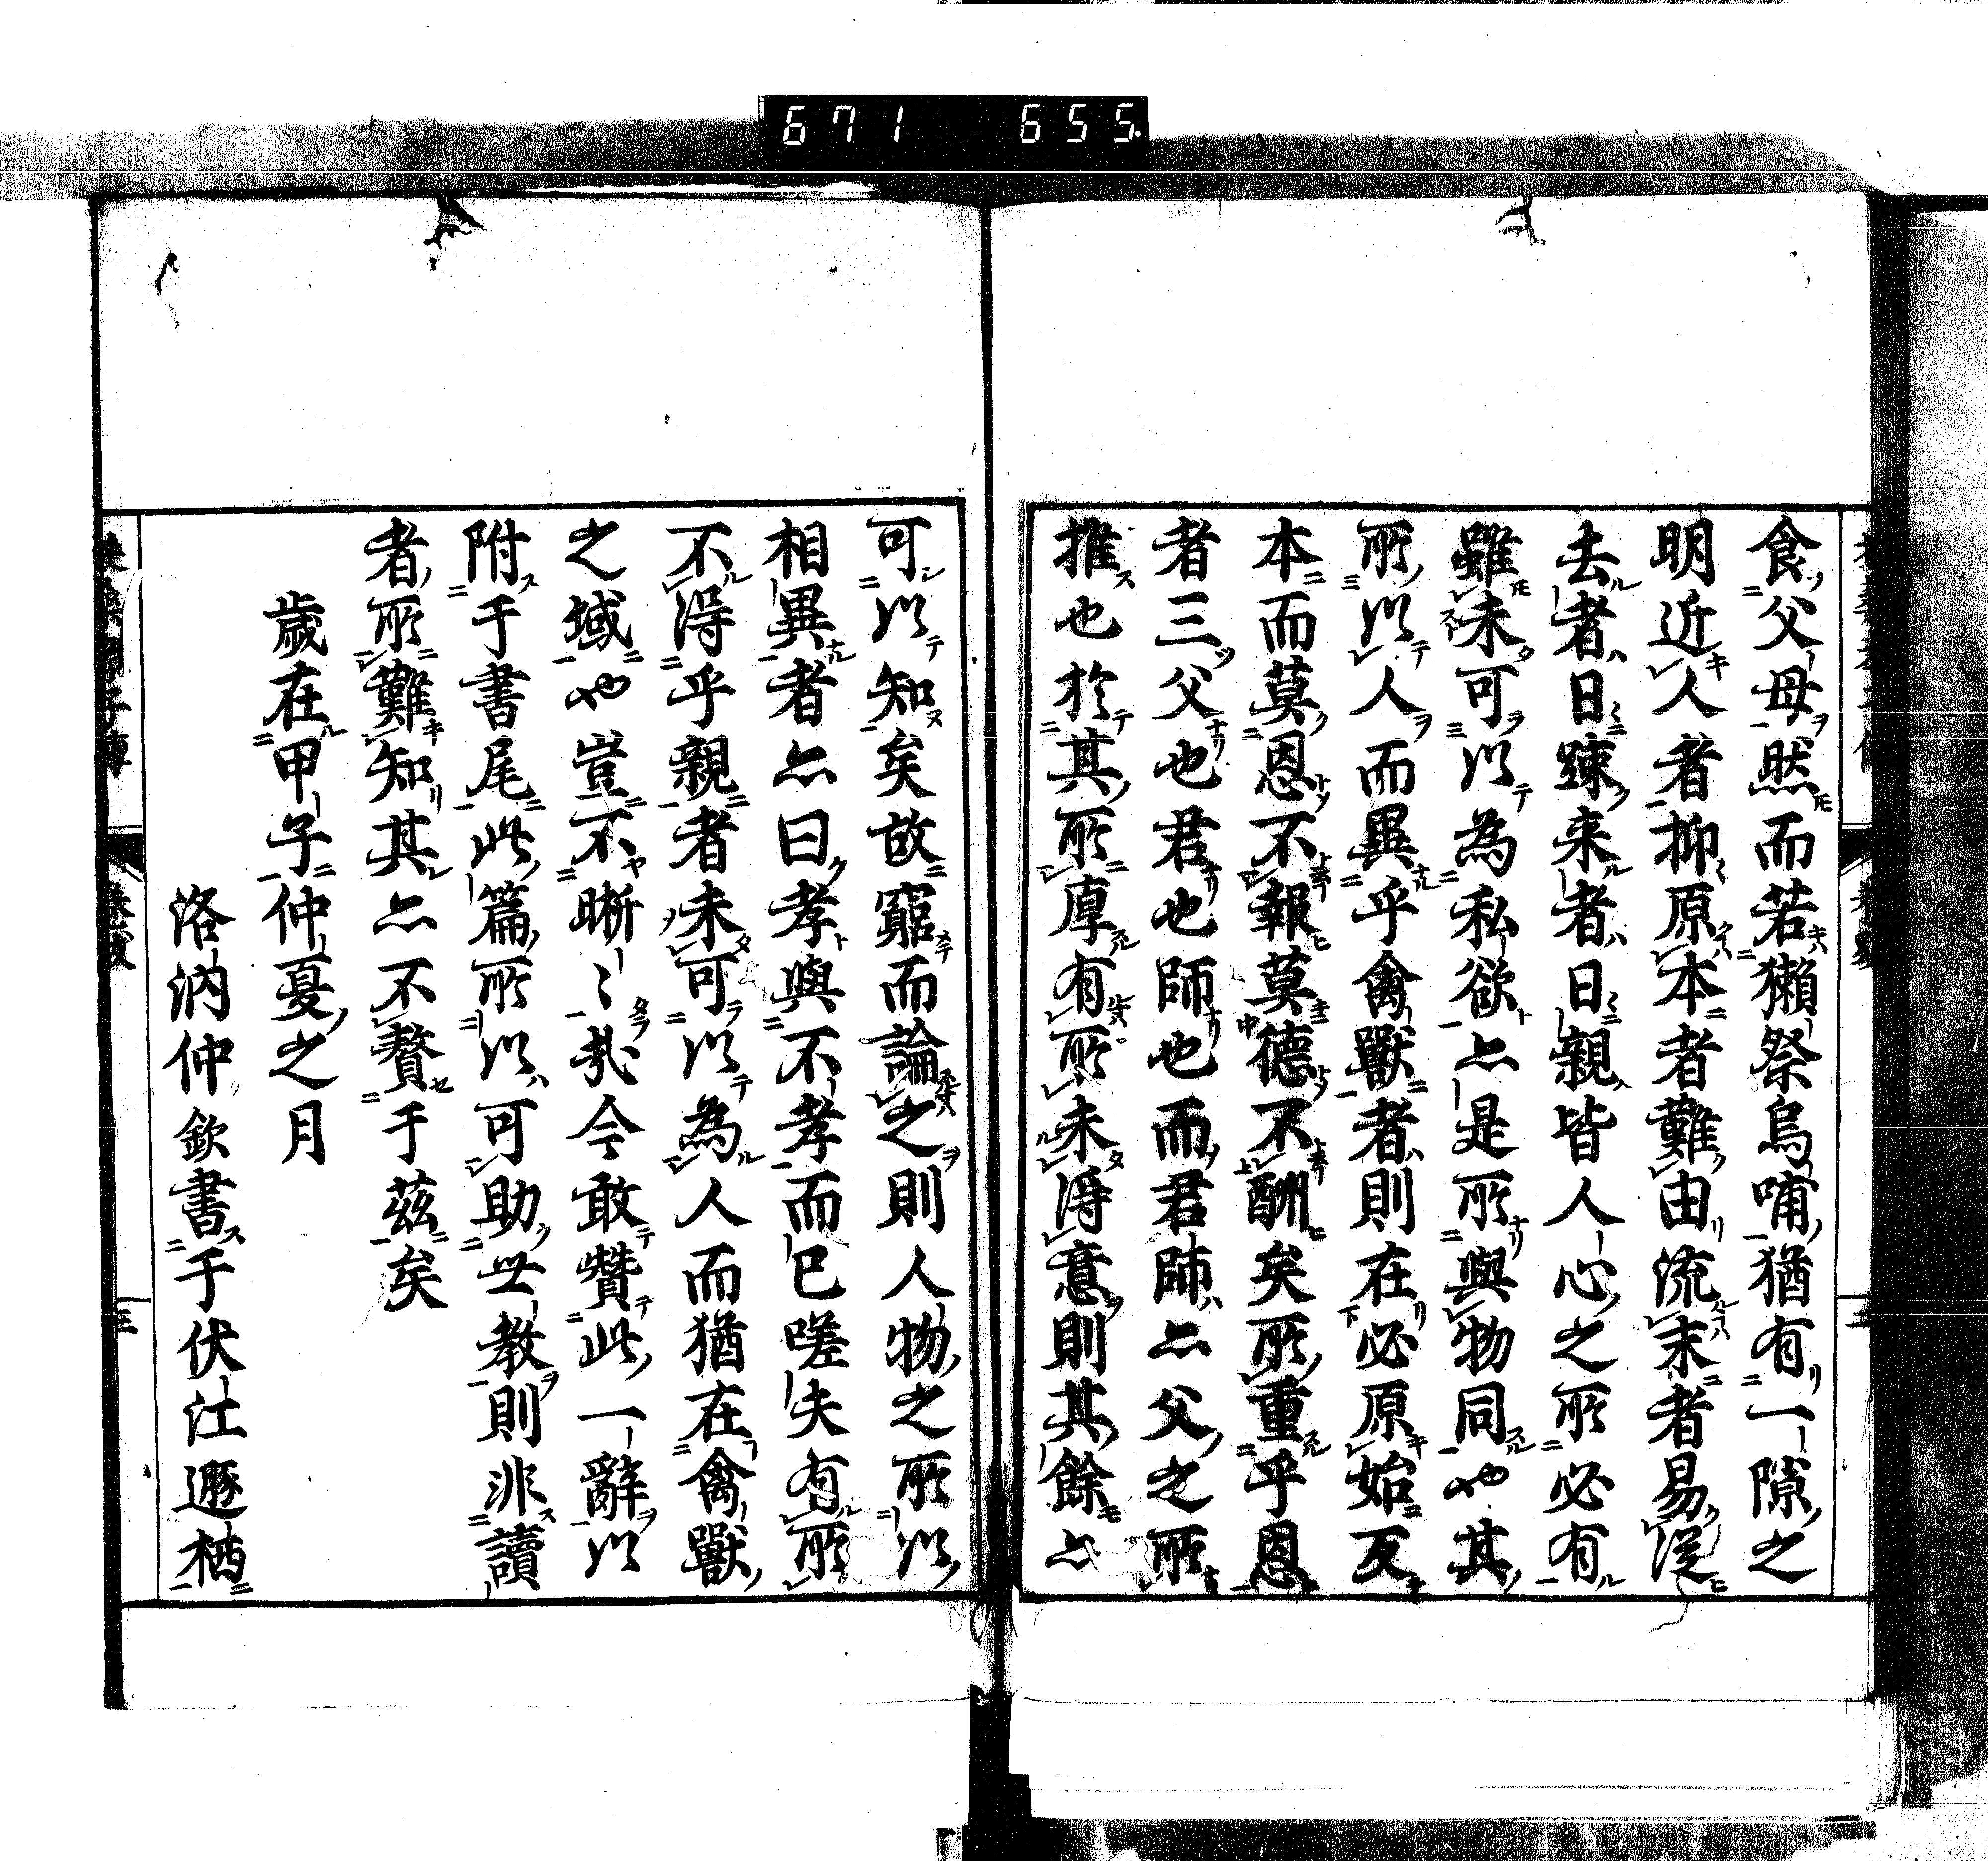 671 655
食父母然而若獺祭烏哺猶有一隙之
明近人者抑原本者難由流末者易從
去者日踈来者日親皆人心之所必有
雖未可以為私欲亦是所與物同也其
所以人而異乎禽獸者則在必原始反
本而莫恩不報莫德不酬矣所重乎恩
者三父也君也師也而君師亦父之所
推也於其所厚有所未得意則其餘亦
可以知矣故窮而論之則人物之所以
相異者亦曰孝與不孝而已嗟夫有所
不得乎親者未可以為人而猶在禽獸
之域也豈不晣〻哉今敢贊此一辭以
附于書尾此篇所以可助世教則非讀
者所難知其亦不贅于茲矣
歲在甲子仲憂之月
洛汭仲欽書于伏江遯栖
三